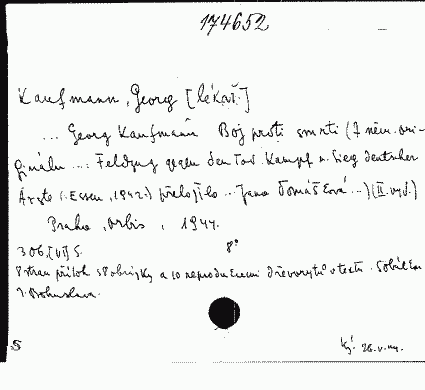 174652
Kaufmann, Georg [lékař.]
... Georg Kaufmann Boj proti smrti (Z něm. ori-
ginálu ... Feldzug gegen den Tod. Kampf u. Sieg deutscher
Ärzte (. Essen, 1942.) přeložilo ... Jana Tomáš ... ) (II. vyd.)
Praha, Orbis, 1944.
306, [VI] s. 8°
8 stran příloh s obrázky a 10 reprodukcemi dřevorytů v textu.
Bohuslava.
S 26.V.44.